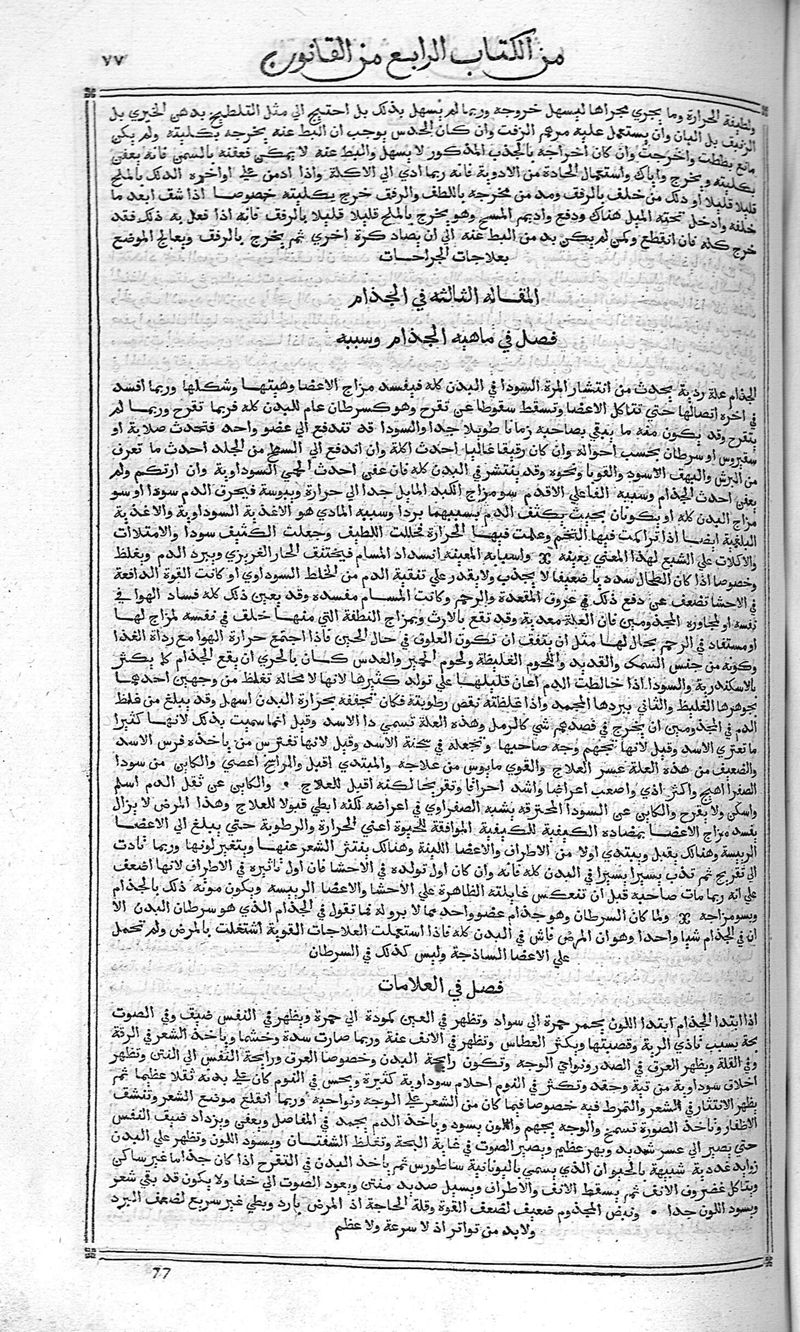 من الكتاب الرابع من القانون
٧٧
ولطيفة الحرارة وما يجري مجراها ليسهل خروجه وربما لم يسهل بذلك بل احتيج الي مثل التلطيخ بدهن الخيري بل
الزنبق بل البان وان يستعمل عليه مرهم الزفت وان كان الحدس يوجب ان البط عنه يخرجه بكليته ولم يكن
مانع بططت واخرجت وان كان اخراجه بالجذب المذكور لا يسهل والبط عنه لا يمكن فعفنه بالسمن فانه يعفن
بكليته ويخرج واياك واستعمال الحادة من الادوية فانه ربما ادي الي الاكلة واذا ادمن علي اواخره الدلك بالملح
قليلا قليلا او دلك من خلف بالرفق ومد من مخرجه باللطف والرفق خرج بكليته خصوصا اذا شق ابعد ما
خلفه وادخل تحته الميل هناك ودفع واديم المسح وهو يخرج بالملح قليلا قليلا بالرفق فانه اذا فعل به ذلك فقد
خرج كله فان انقطع وكمن لم يكن بد من البط عنه الي ان يصاد كرة اخري ثم يخرج بالرفق ويعالج الموضع
بعلاجات الجراحات
المقاله الثالثه في الجذام
فصل في ماهيه الجذام وسببه
الجذام علة ردية يحدث من انتشار المرة السودا في البدن كله فيفسد مزاج الاعضا وهيتها وشكلها وربما افسد
في اخره اتصالها حتي تتاكل الاعضا وتسقط سقوطا عن تقرح وهو كسرطان عام للبدن كله فربما تقرح وربما لم
يتقرح وقد يكون منه ما يبقي بصاحبه زمانا طويلا جدا والسودا قد تندفع الي عضو واحد فتحدث صلابة او
سقيروس او سرطان بحسب احواله وان كان رقيقا غاليا احدث اكلة وان اندفع الي السطح من الجلد احدث ما تعرف
من البرش والبهق الاسود والقوبا ونحوه وقد ينتشر في البدن كله فان عفن احدث الحمي السوداوية وان ارتكم ولم
يعفن احدث الجذام وسببه الفاعلي الاقدم سو مزاج الكبد المايل جدا الي حرارة ويبوسة فيحرق الدم سودا او سو
مزاج البدن كله او يكونان بحيث يكثف الدم بسببهما بردا وسببه المادي هو الاغذية السوداوية والاغذية
البلغمية ايضا اذا تراكمت فيها التخم وعملت فيها الحرارة فحللت اللطيف وجعلت الكثيف سودا والامتلات
والاكلات علي الشبع لهذا المعني بعينه واسبابه المعينه انسداد المسام فيختنق الحار الغريزي ويبرد الدم ويغلظ
وخصوصا اذا كان الطحال سدديا ضعيفا لا يجذب ولا يقدر علي تنقية الدم من الخلط السوداوي او كانت القوة الدافعة
في الاحشا تضعف عن دفع ذلك في عروق المقعدة والرحم وكانت المسام منسده وقد يعين ذلك كله فساد الهوا في
نفسه او لمجاوره المجذومين فان العلة معدية وقد تقع بالارث وبمزاج النطفة التي منها خلق في نفسه لمزاج لها
او مستفاد في الرحم بحال لها مثل ان يتفق ان تكون العلوق في حال الحيض فاذا اجتمع حرارة الهوا مع رداة الغذا
وكونه من جنس السمك والقديد واللحوم الغليظة ولحوم الحمير والعدس كان بالحري ان يقع الجذام كما يكثر
بالاسكندرية والسودا اذا خالطت الدم اعان قليلها علي تولد كثيرها لانها لا محالة تغلظ من وجهين احدهما
بجوهرها الغليظ والثاني ببردها المجمد واذا غلظته نقص رطوبته فكان تجففه بحرارة البدن اسهل وقد يبلغ من غلظ
الدم في المجذومين ان يخرج في فصدهم شي كالرمل وهذه العلة تسمي دا الاسد وقيل انما سميت بذلك لانها كثيرا
ما تعتري الاسد وقيل لانها تجهم وجه صاحبها وتجعله في سحنة الاسد وقيل لانها تفترس من ياخذه فرس الاسد
والضعيف من هذه العلة عسر العلاج والقوي مايوس من علاجه والمبتدي اقبل والراسخ اعصي والكاين من سودا
الصفرا اهيج واكثر اذي واصعب اعراضا واشد احراقا وتقريحا لكنه اقبل للعلاج والكاين عن ثفل الدم اسلم
واسكن ولا يقرح والكاين عن السودا المحترقه يشبه الصفراوي في اعراضه لكنه ابطي قبولا للعلاج وهذا المرض لا يزال
يفسد مزاج الاعضا بمضادة الكيفية للكيفية الموافقة للحيوة اعني الحرارة والرطوبة حتي يبلغ الي الاعضا
الرييسة وهنالك يقتل ويبتدي اولا من الاطراف والاعضا اللينة وهنالك ينتثر الشعر عنها ويتغير لونها وربما تادت
الي تقريح ثم تدب يسيرا يسيرا في البدن كله فانه وان كان اول تولده في الاحشا فان اول تاثيره في الاطراف لانها اضعف
علي انه ربما مات صاحبه قبل ان تنعكس غايلته الظاهرة علي الاحشا والاعضا الرييسه ويكون موته ذلك بالجذام
وبسو مزاجه ولما كان السرطان وهو جذام عضو واحد مما لا برو له فما تقول في الجذام الذي هو سرطان البدن الا
ان في الجذام شيا واحدا وهو ان المرض فاش في البدن كله فاذا استعملت العلاجات القوية اشتغلت بالمرض ولم تحمل
علي الاعضا الساذجة وليس كذلك في السرطان
فصل في العلامات
اذا ابتدا الجذام ابتدا اللون يحمر حمرة الي سواد وتظهر في العين كمودة الي حمرة ويظهر في النفس ضيق وفي الصوت
بحة بسبب تاذي الرية وقصبتها ويكثر العطاس وتظهر في الانف غنة وربما صارت سدة وخشما وياخذ الشعر في الرقة
وفي القلة ويظهر العرق في الصدر ونواحي الوجه وتكون رايحة البدن وخصوصا العرق ورايحة النفس الي النتن وتظهر
اخلاق سوداوية من تيه وحقد وتكثر في النوم احلام سوداوية كثيرة ويحس في النوم كان علي بدنه ثقلا عظيما ثم
يظهر الانتثار في الشعر والتمرط فيه خصوصا فيما كان من الشعر علي الوجه ونواحيه وربما انقلع موضع الشعر وتتشقق
الاظفار وتاخذ الصورة تسمج والوجه يجهم واللون يسود وياخذ الدم يجمد في المفاصل ويعفن ويزداد ضيق النفس
حتي يصير الي عسر شديد وبهر عظيم ويصير الصوت في غاية البحة وتغلظ الشفتان ويسود اللون وتظهر علي البدن
زوايد غددية شبيهة بالحيوان الذي يسمي باليونانية ساطورس ثم ياخذ البدن في التقرح اذا كان جذاما غير ساكن
ويتاكل غضروف الانف ثم يسقط الانف والاطراف ويسيل صديد منتن ويعود الصوت الي خفا ولا يكون قد بقي شعر
ويسود اللون جدا ونبض المجذوم ضعيف لضعف القوة وقلة الحاجة اذ المرض بارد وبطي غير سريع لضعف البرد
ولا بد من تواتر اذ لا سرعة ولا عظم
77